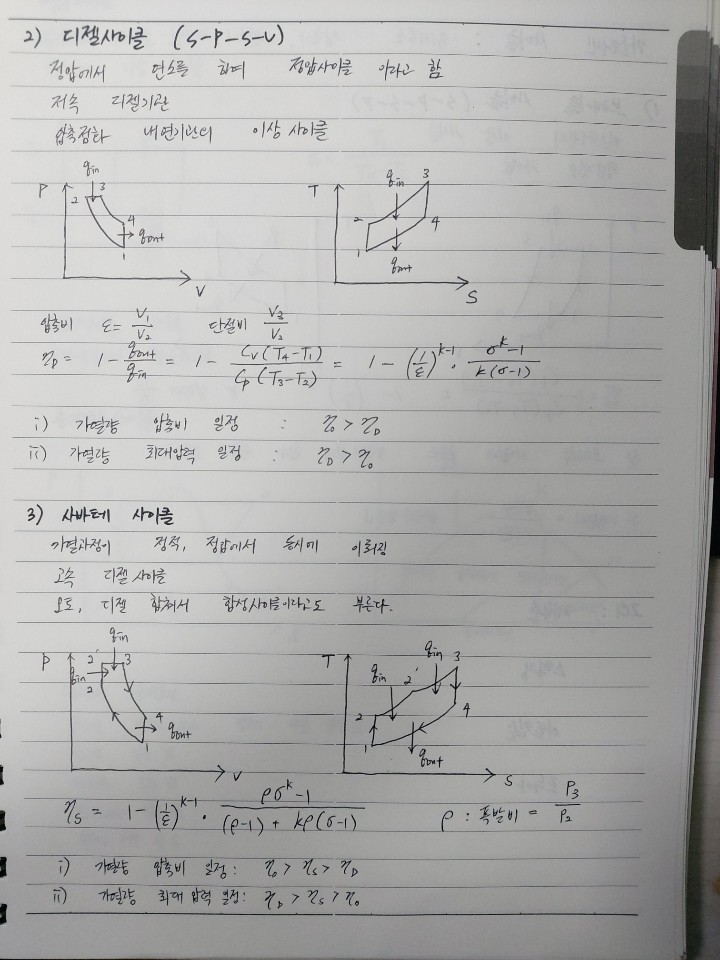 2) 디젤사이클 (S-P-S-V)
정압에서 연소를 하며 정압사이클 이라고 함
저속 디젤기관
압축점화 내연기관의 이상 사이클
P qin 2 3 4 qout 1 V
T qin 3 2 4 1 qout S
압축비 ε= V₁/V₂ 단절비 V₃/V₂
η_D = 1 - qout/qin = 1 - Cv(T₄-T₁)/Cp(T₃-T₂) = 1 - (1/ε)^(k-1) · (σ^k-1)/(k(σ-1))
i) 가열량 압축비 일정 : η₀ > η_D
ii) 가열량 최대압력 일정 : η_D > η₀
3) 사바테 사이클
가열과정이 정적, 정압에서 동시에 이뤄짐
고속 디젤 사이클
오토, 디젤 합쳐서 합성사이클이라고도 부른다.
P qin 2' 3 qin 2 4 qout 1 V
T qin 3 qin 2' 2 4 1 qout S
η_S = 1 - (1/ε)^(k-1) · (ρσ^k-1)/((ρ-1) + kρ(σ-1)) ρ : 폭발비 = P₃/P₂
i) 가열량 압축비 일정: η₀ > η_S > η_D
ii) 가열량 최대 압력 일정: η_D > η_S > η₀